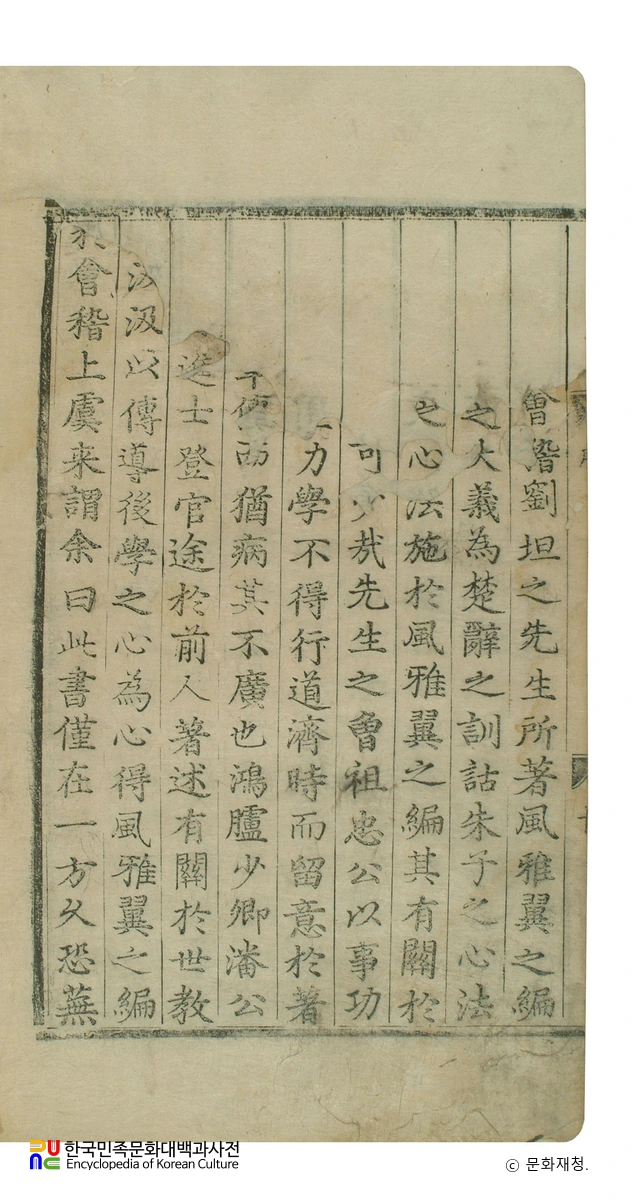 曾𥡴劉坦之先生所著風雅翼之編
之大義為楚辭之訓詁朱子之心法
之心法施於風雅翼之編其有關於
可少㦲先生之曾祖忠公以事功
力學不得行道濟時而留意於著
而猶病其不廣也鴻臚少卿潘公
進士登官途於前人著述有關於世教
汲汲以傳導後學之心為心得風雅翼之編
於會稽上虞来謂余曰此書僅在一方久恐蕪
한국민족문화대백과사전
Encyclopedia of Korean Culture
© 문화재청.